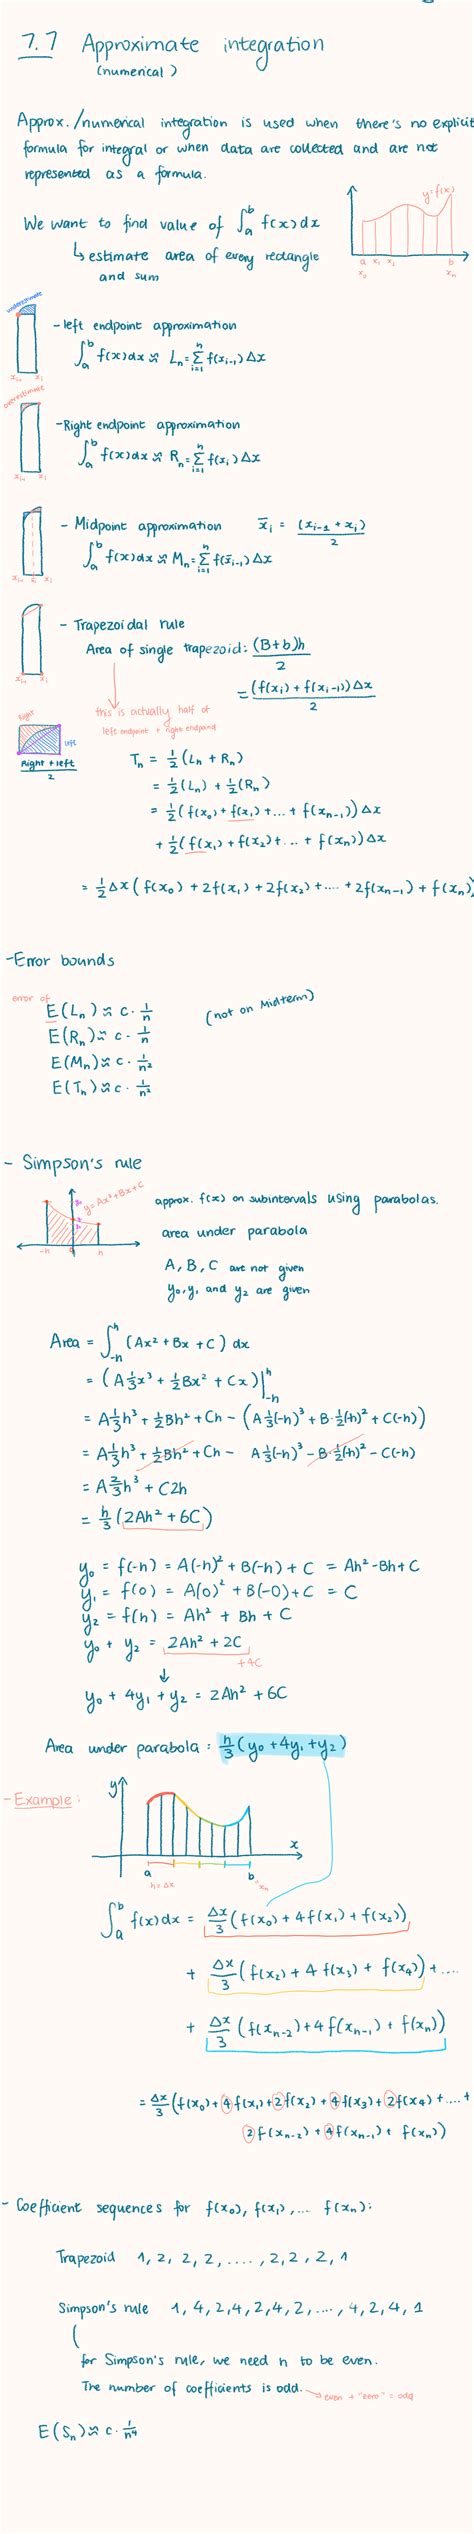 7.7 Approximate integration
(numerical)
Approx./numerical integration is used when there's no explicit
formula for integral or when data are collected and are not
represented as a formula.
y=f(x)
We want to find value of ∫_a^b f(x)dx
↳ estimate area of every rectangle
and sum
a x₁ x₂ b
x₀ xₙ
underestimate
- left endpoint approximation
∫_a^b f(x)dx ≈ Lₙ = Σ_{i=1}^n f(x_{i-1})Δx
x_{i-1} x_i
overestimate
- Right endpoint approximation
∫_a^b f(x)dx ≈ Rₙ = Σ_{i=1}^n f(x_i)Δx
x_{i-1} x_i
- Midpoint approximation x̄_i = (x_{i-1} + x_i)/2
∫_a^b f(x)dx ≈ Mₙ = Σ_{i=1}^n f(x̄_{i-1})Δx
x_{i-1} x_i
- Trapezoidal rule
Area of single trapezoid: (B+b)h/2
= (f(x_i) + f(x_{i-1}))Δx/2
x_{i-1} x_i
this is actually half of
left endpoint + right endpoint
Right
left
Right + left/2
Tₙ = ½(Lₙ + Rₙ)
= ½(Lₙ) + ½(Rₙ)
= ½(f(x₀) + f(x₁) + ... + f(x_{n-1}))Δx
+ ½(f(x₁) + f(x₂) + ... + f(xₙ))Δx
= ½Δx(f(x₀) + 2f(x₁) + 2f(x₂) + .... + 2f(x_{n-1}) + f(xₙ))
- Error bounds
error of
E(Lₙ) ≈ c · 1/n (not on Midterm)
E(Rₙ) ≈ c · 1/n
E(Mₙ) ≈ c · 1/n²
E(Tₙ) ≈ c · 1/n²
- Simpson's rule
y = Ax²+Bx+C
approx. f(x) on subintervals using parabolas.
area under parabola
-h 0 h
A, B, C are not given
y₀, y₁ and y₂ are given
Area = ∫_{-h}^h (Ax² + Bx + C) dx
= (A⅓x³ + ½Bx² + Cx)|_{-h}^h
= A⅓h³ + ½Bh² + Ch - (A⅓(-h)³ + B·½(-h)² + C(-h))
= A⅓h³ + ½Bh² + Ch - A⅓(-h)³ - B·½(-h)² - C(-h)
= A⅔h³ + C2h
= h/3 (2Ah² + 6C)
y₀ = f(-h) = A(-h)² + B(-h) + C = Ah² - Bh + C
y₁ = f(0) = A(0)² + B(-0) + C = C
y₂ = f(h) = Ah² + Bh + C
y₀ + y₂ = 2Ah² + 2C
+4C
↓
y₀ + 4y₁ + y₂ = 2Ah² + 6C
Area under parabola : h/3 (y₀ + 4y₁ + y₂)
- Example :
y
x
a b
h = Δx = xₙ
∫_a^b f(x)dx = Δx/3 (f(x₀) + 4f(x₁) + f(x₂))
+ Δx/3 (f(x₂) + 4 f(x₃) + f(x₄)) + ....
+ Δx/3 (f(x_{n-2}) + 4f(x_{n-1}) + f(xₙ))
= Δx/3 (f(x₀) + 4f(x₁) + 2f(x₂) + 4f(x₃) + 2f(x₄) + .... +
2f(x_{n-2}) + 4f(x_{n-1}) + f(xₙ))
- Coefficient sequences for f(x₀), f(x₁), ... f(xₙ):
Trapezoid 1, 2, 2, 2, ...., 2, 2, 2, 1
Simpson's rule 1, 4, 2, 4, 2, 4, 2, ...., 4, 2, 4, 1
for Simpson's rule, we need n to be even.
The number of coefficients is odd. → even + "zero" = odd
E(Sₙ) ≈ c · 1/n⁴